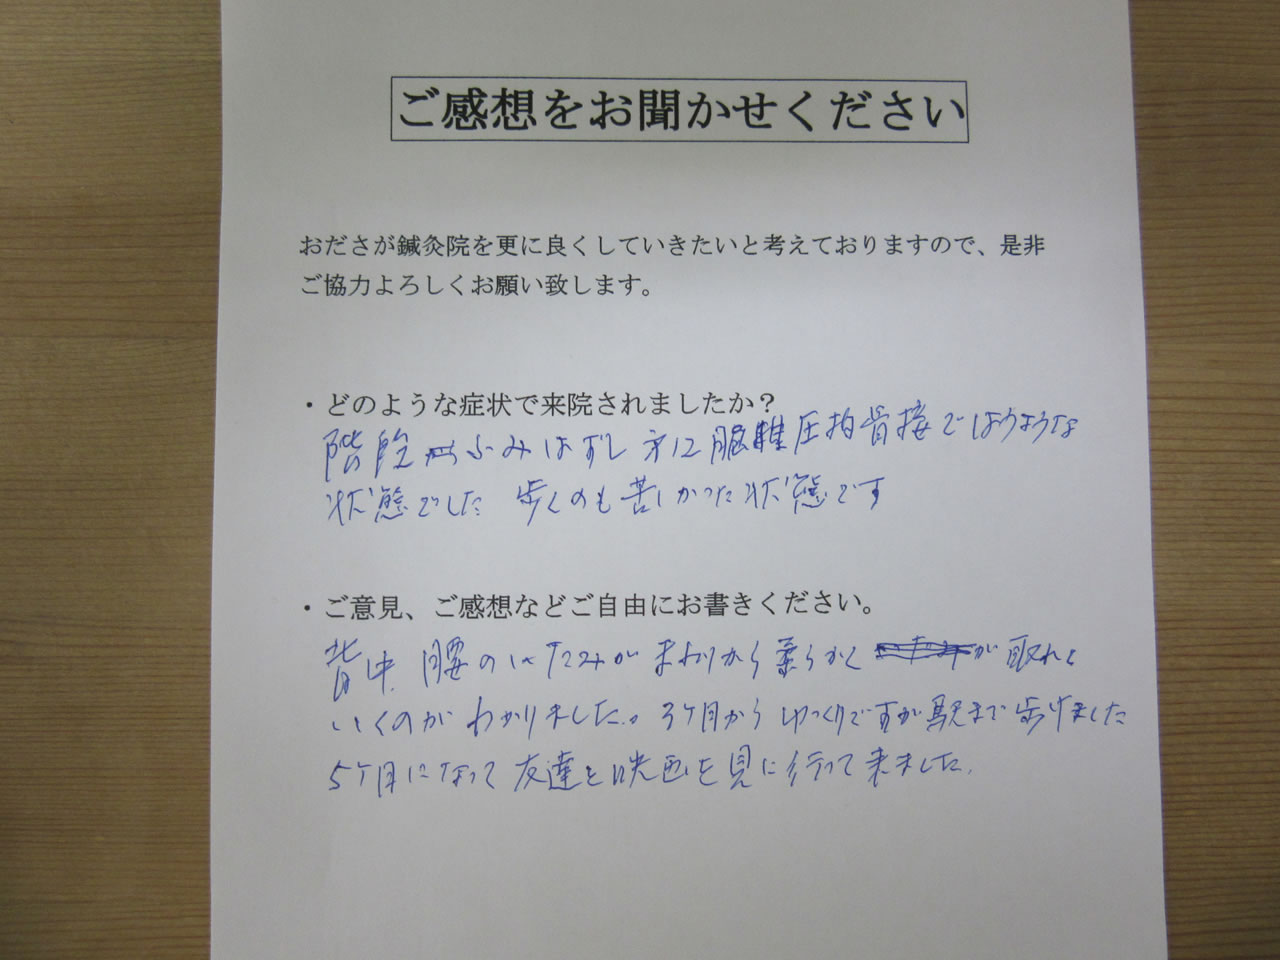 ご感想をお聞かせください
おださが鍼灸院を更に良くしていきたいと考えておりますので、是非
ご協力よろしくお願い致します。
・どのような症状で来院されましたか？
階段からふみはずし 圧拍骨接ではうような
状態でした 歩くのも苦しかった状態です
・ご意見、ご感想などご自由にお書きください。
背中、腰のいたみがまわりから柔らかく が取れて
いくのがわかりました。3ヶ月からゆっくりですが駅まで歩けました
5ヶ月になって友達と映画を見に行って来ました。